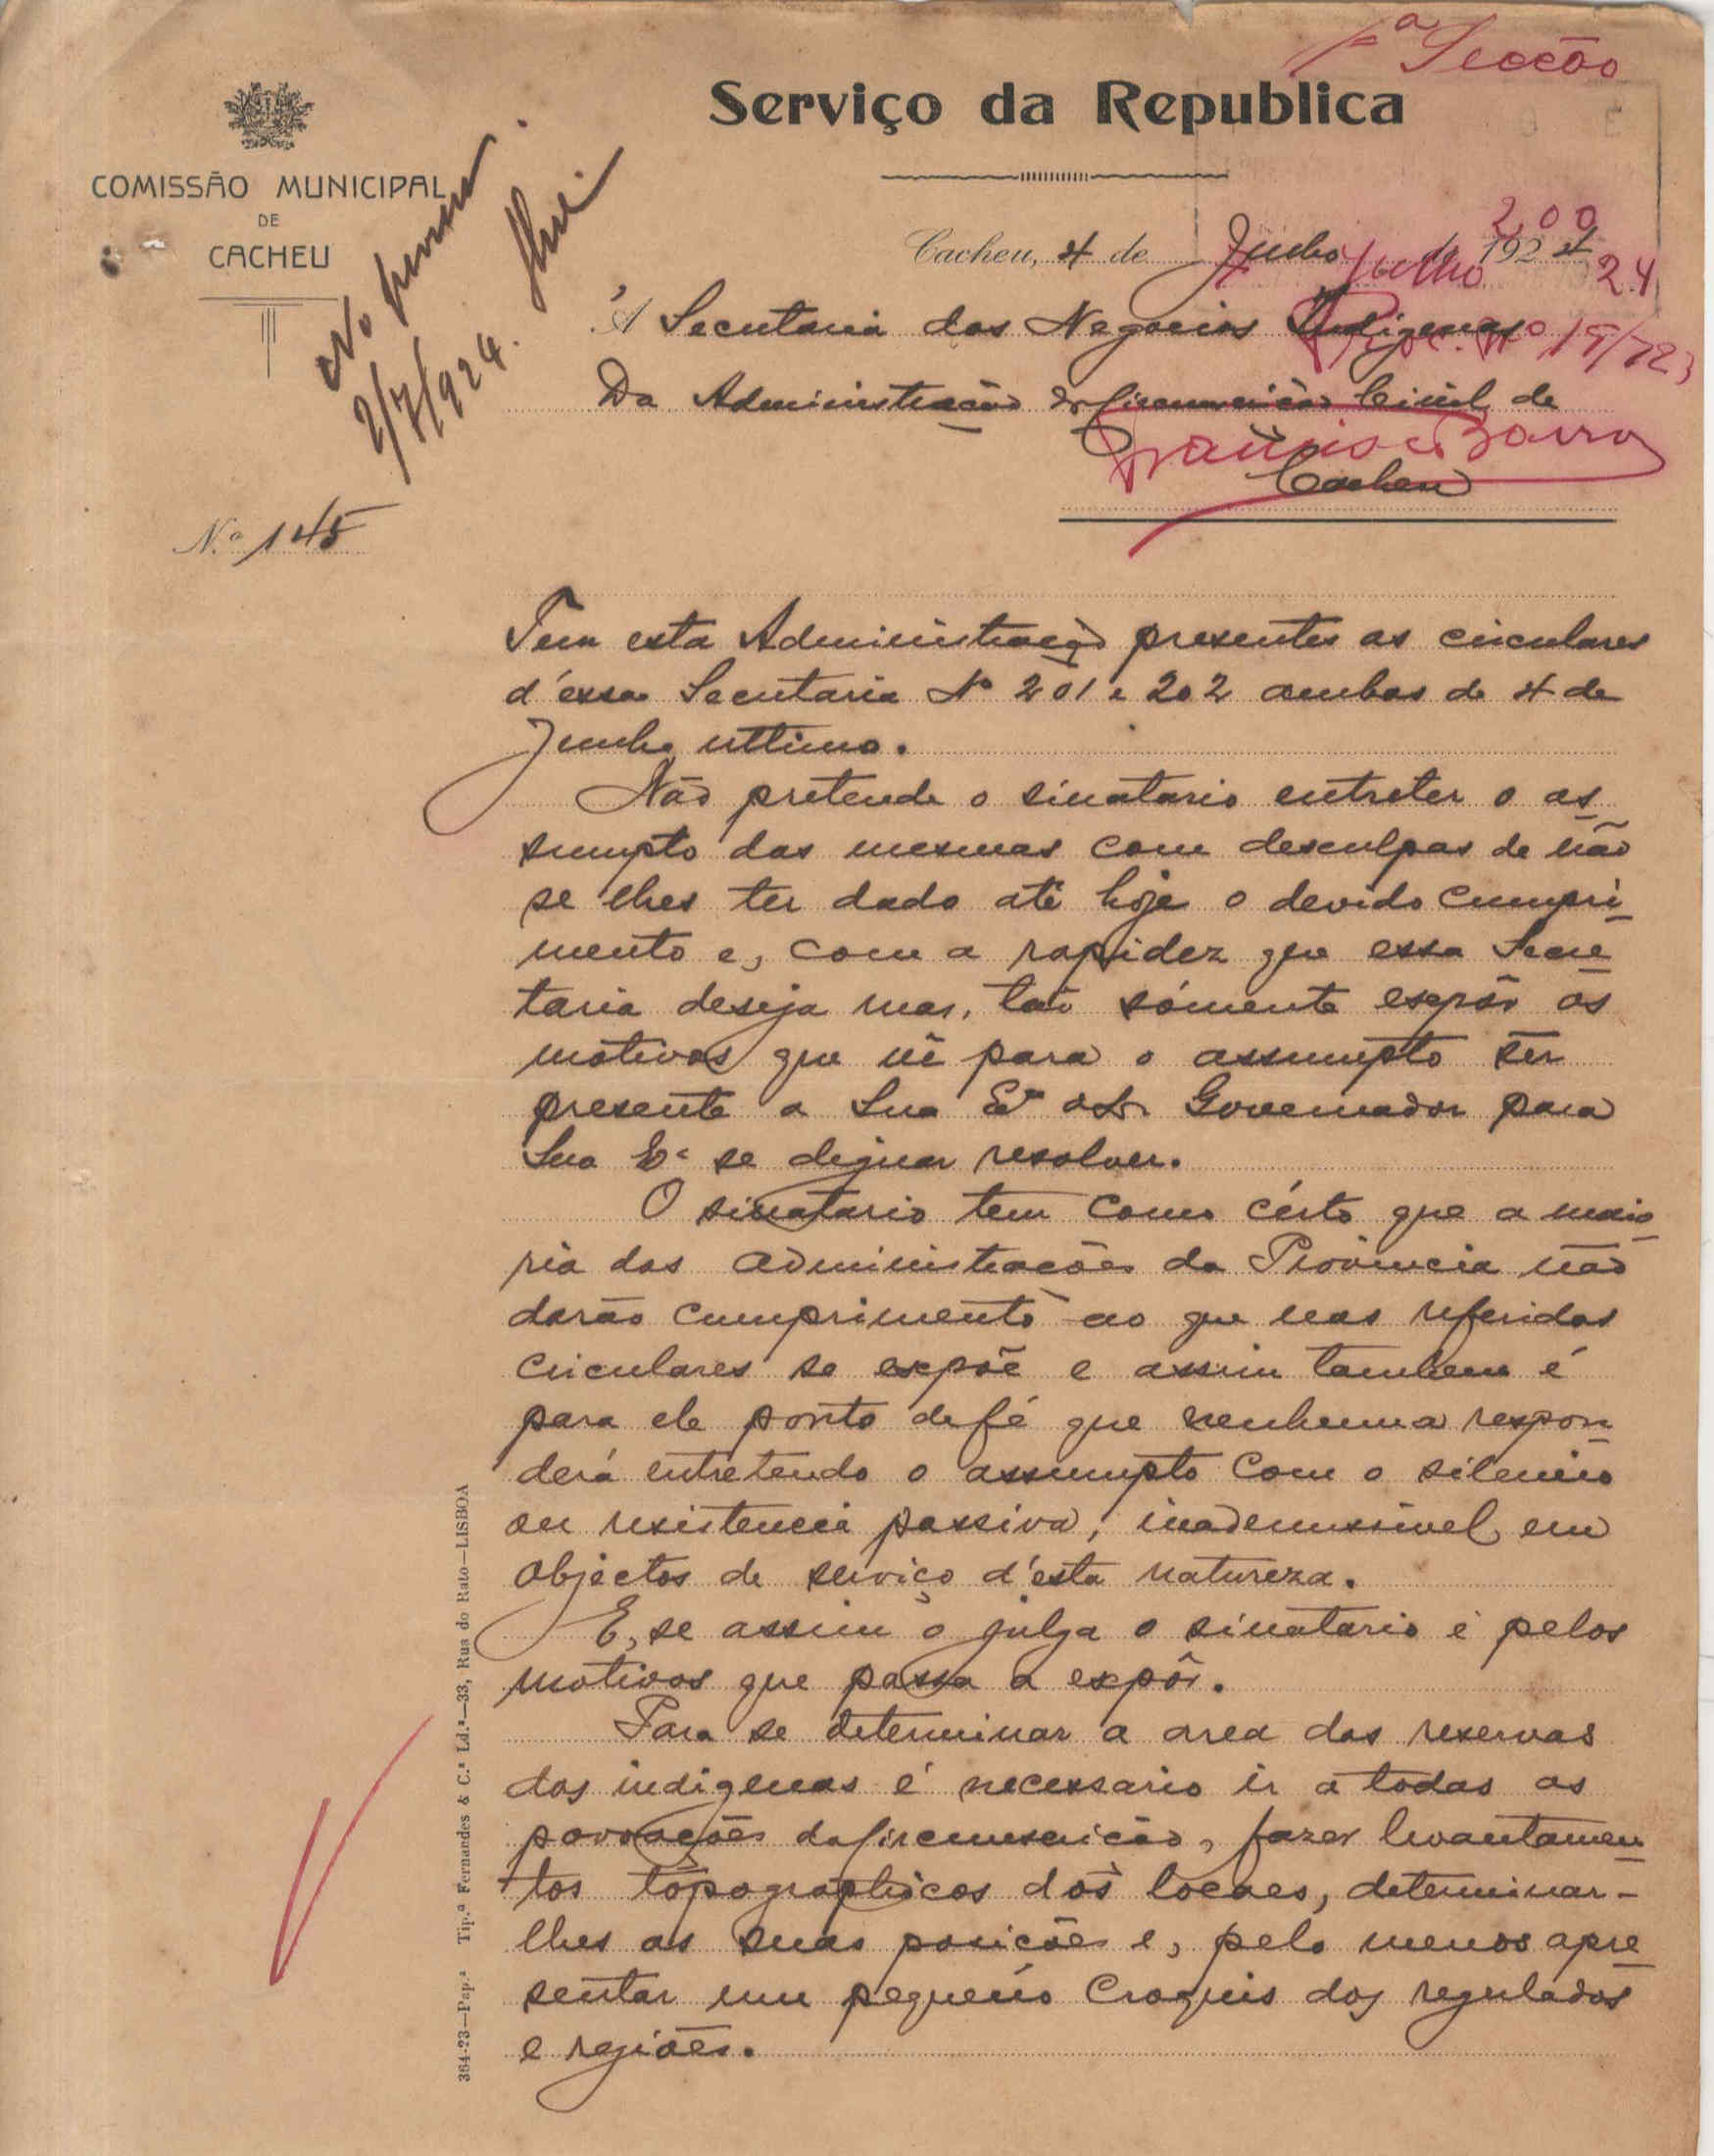 1ª Secção
Serviço da Republica
COMISSÃO MUNICIPAL
DE
CACHEU
2/7/924.
Cacheu, 4 de Junho de 1924
200
Julho 24
Á Secretaria dos Negocios Indigenas
Proc. Nº 19/723
Da Administração da Circunscrição Civil de
Francisco Barros
Cacheu
N.º 145
Tem esta Administração presentes as circulares
d'essa Secretaria Nº 201 e 202 ambas de 4 de
Junho ultimo.
Não pretende o sinatario entreter o as-
sumpto das mesmas com desculpas de não
se lhes ter dado até hoje o devido cumpri-
mento e, com a rapidez que essa Secre-
taria deseja mas, tão sómente expôr os
motivos que vê para o assumpto ser
presente a Sua Exª o Sr. Governador para
Sua Exª se dignar resolver.
O sinatario tem como cérto que a maio-
ria das administrações da Provincia não
darão cumprimento ao que nas referidas
circulares se expõe e assim tambem é
para ele ponto de fé que nenhuma respon-
derá entretendo o assumpto com o silencio
ou resistencia passiva, inademissivel em
objectos de serviço d'esta natureza.
E, se assim o julga o sinatario é pelos
motivos que passa a expôr.
Para se determinar a area das reservas
dos indigenas é necessario ir a todas as
povoações da Circunscrição, fazer levantamen-
tos topographicos dos locaes, determinar-
lhes as suas posicões e, pelo menos apre-
sentar um pequeno Croquis dos regulados
e regiões.
364-23—Pap.ª Tip.ª Fernandes & C.ª Ld.ª—33, Rua do Rato—LISBOA